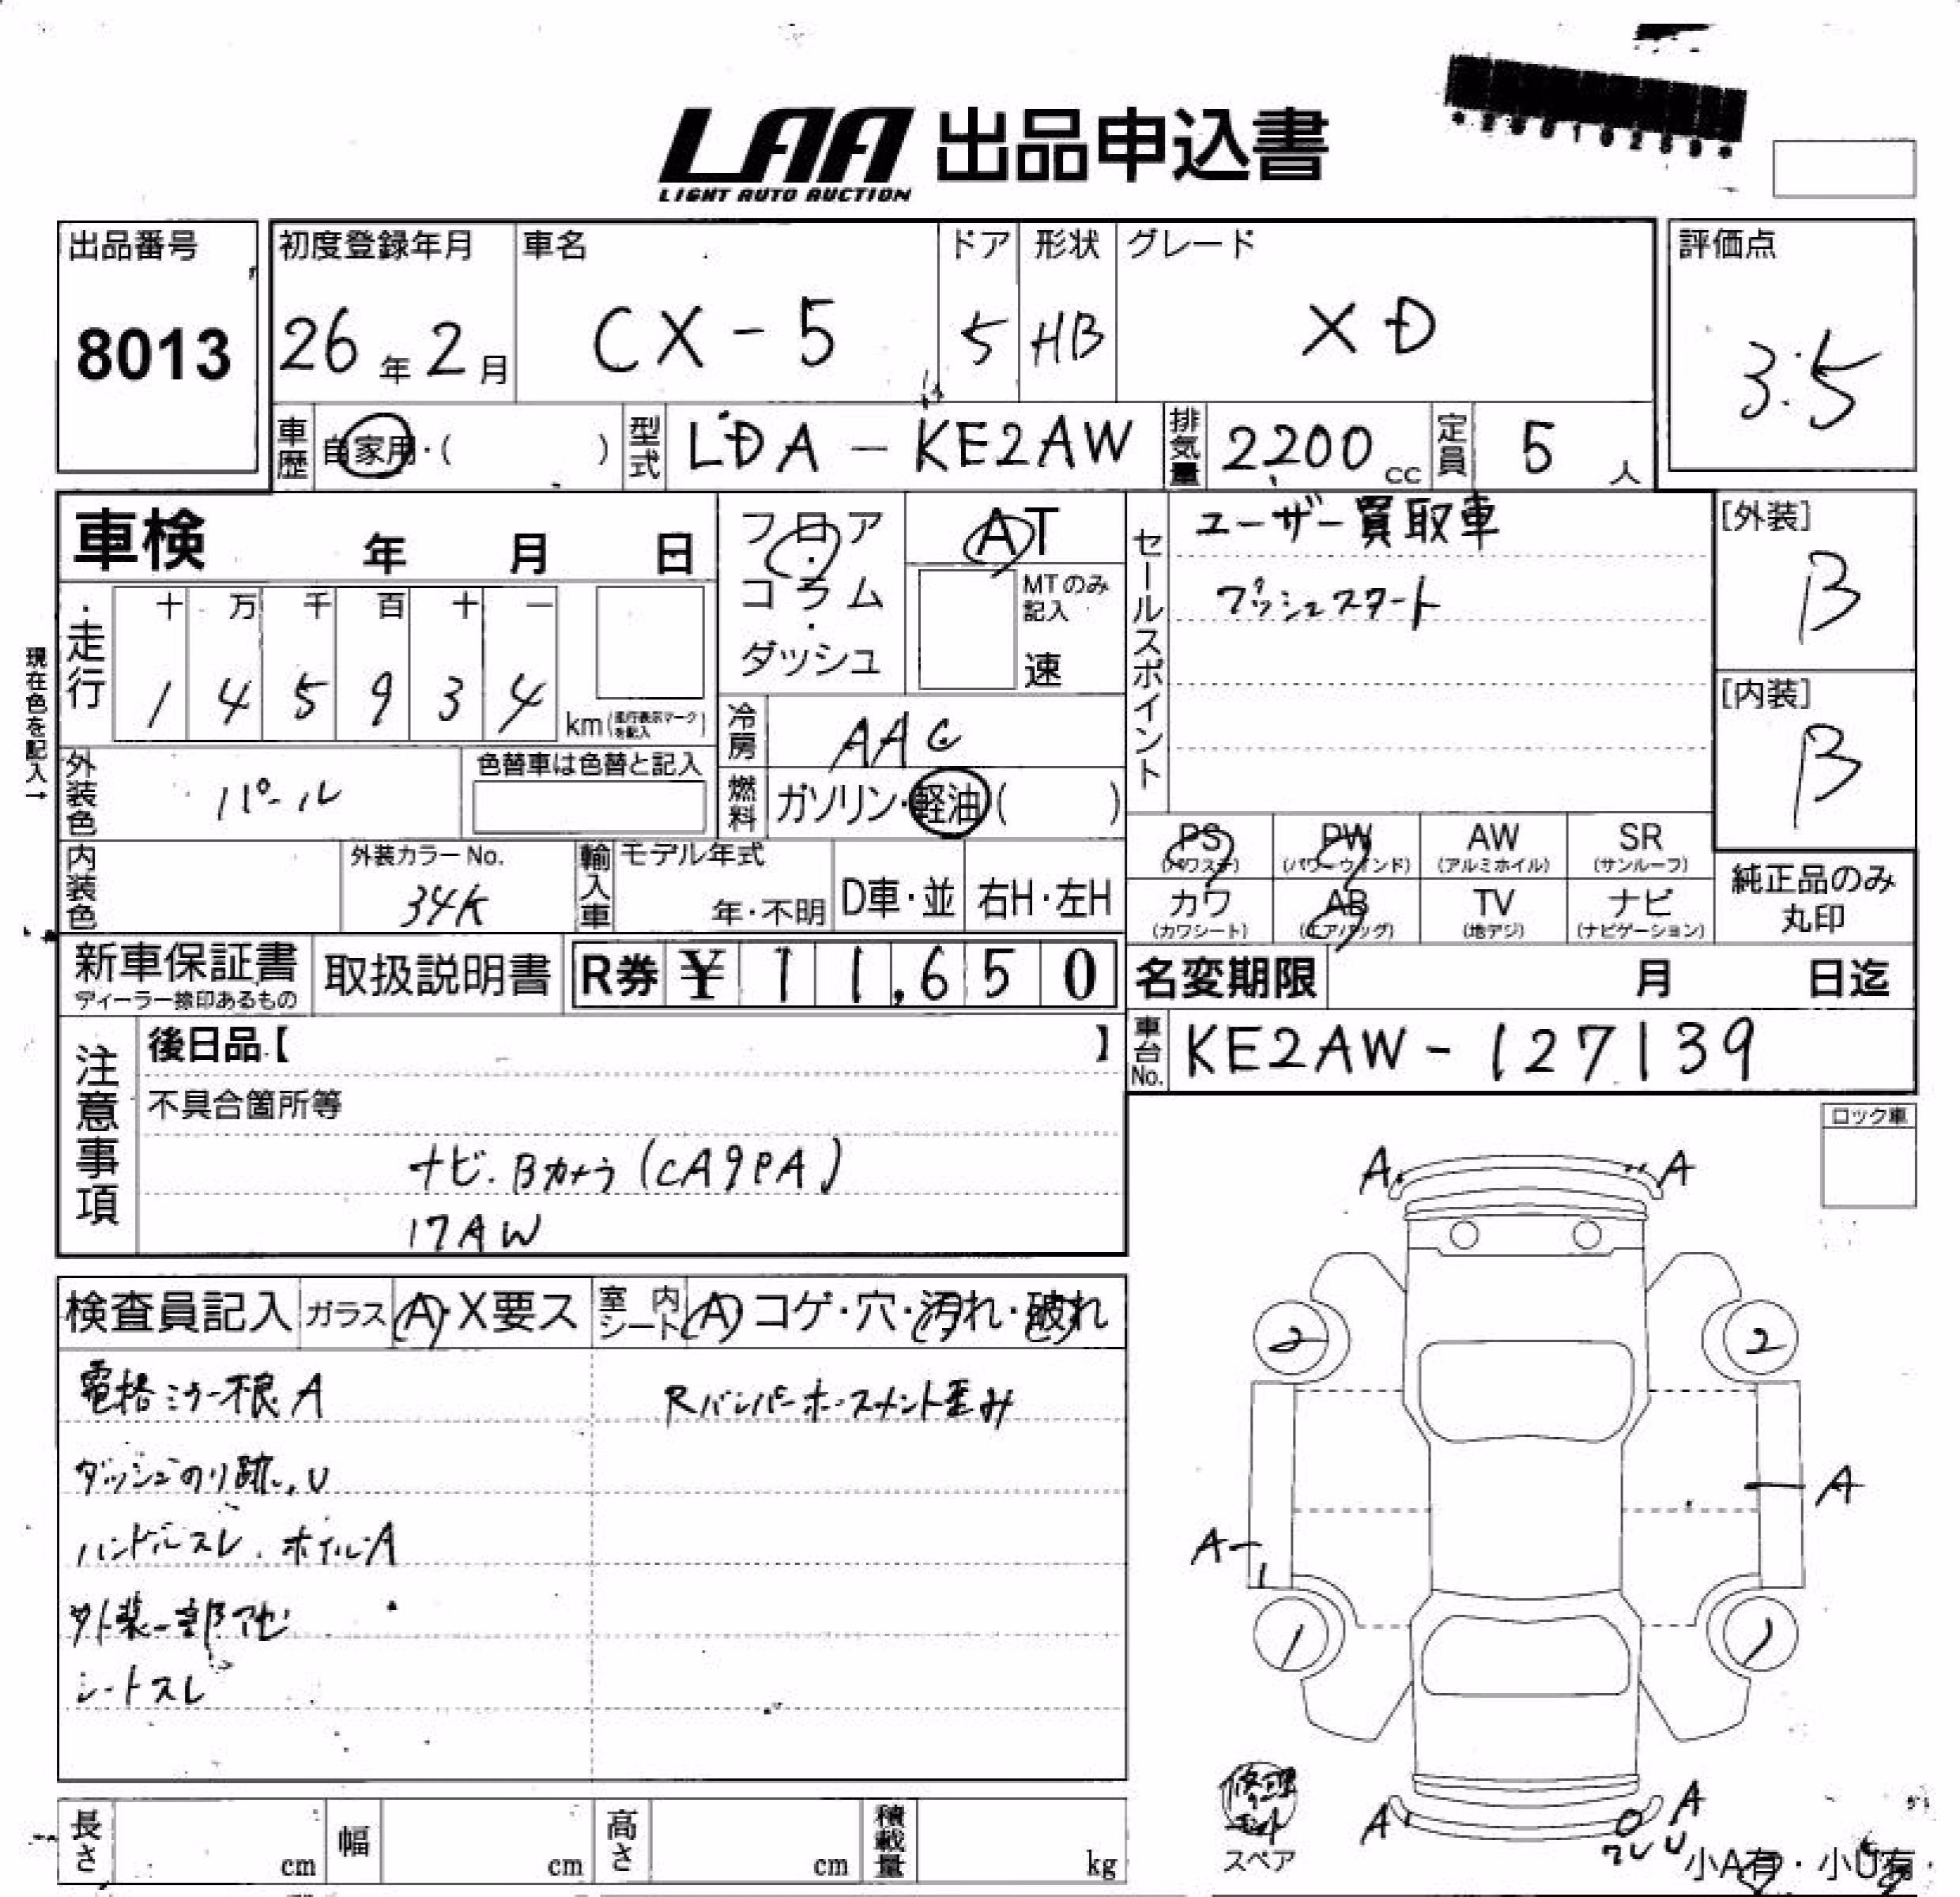 LAA 出品申込書
LIGHT AUTO AUCTION
出品番号
8013
初度登録年月
26年2月
車名
CX-5
ドア
5
形状
HB
グレード
XD
評価点
3.5
車歴 自家用・( )
型式 LDA-KE2AW
排気量 2200cc
定員 5人
車検 年 月 日
フロア・コラム・ダッシュ
AT
MTのみ記入
速
セールスポイント
ユーザー買取車
プッシュスタート
[外装]
B
[内装]
B
現在色を記入→
走行
十 万 千 百 十 一
1 4 5 9 3 4 km(走行表示マークを記入)
冷房 AAC
外装色 パール
色替車は色替と記入
燃料 ガソリン・軽油( )
内装色
外装カラーNo.
34K
輸入車
モデル年式
年・不明
D車・並
右H・左H
PS (パワステ)
PW (パワーウィンド)
AW (アルミホイル)
SR (サンルーフ)
カワ (カワシート)
AB (エアバッグ)
TV (地デジ)
ナビ (ナビゲーション)
純正品のみ丸印
新車保証書
ディーラー捺印あるもの
取扱説明書
R券 ¥11,650
名変期限 月 日迄
車台No. KE2AW-127139
注意事項
後日品【 】
不具合箇所等
ナビ.Bカメラ(CA9PA)
17AW
ロック車
検査員記入 ガラス A・X要ス 室内シート A コゲ・穴・汚れ・破れ
電格ミラー不良 A
Rバンパーホースメント歪み
ダッシュのり跡.U
ハンドルスレ.ホイルA
外装一部アセ
シートスレ
A A
2 2
A
A
1 1
A A
U
ワレ
修理キット
スペア
小A有・小U有
長さ cm 幅 cm 高さ cm 積載量 kg